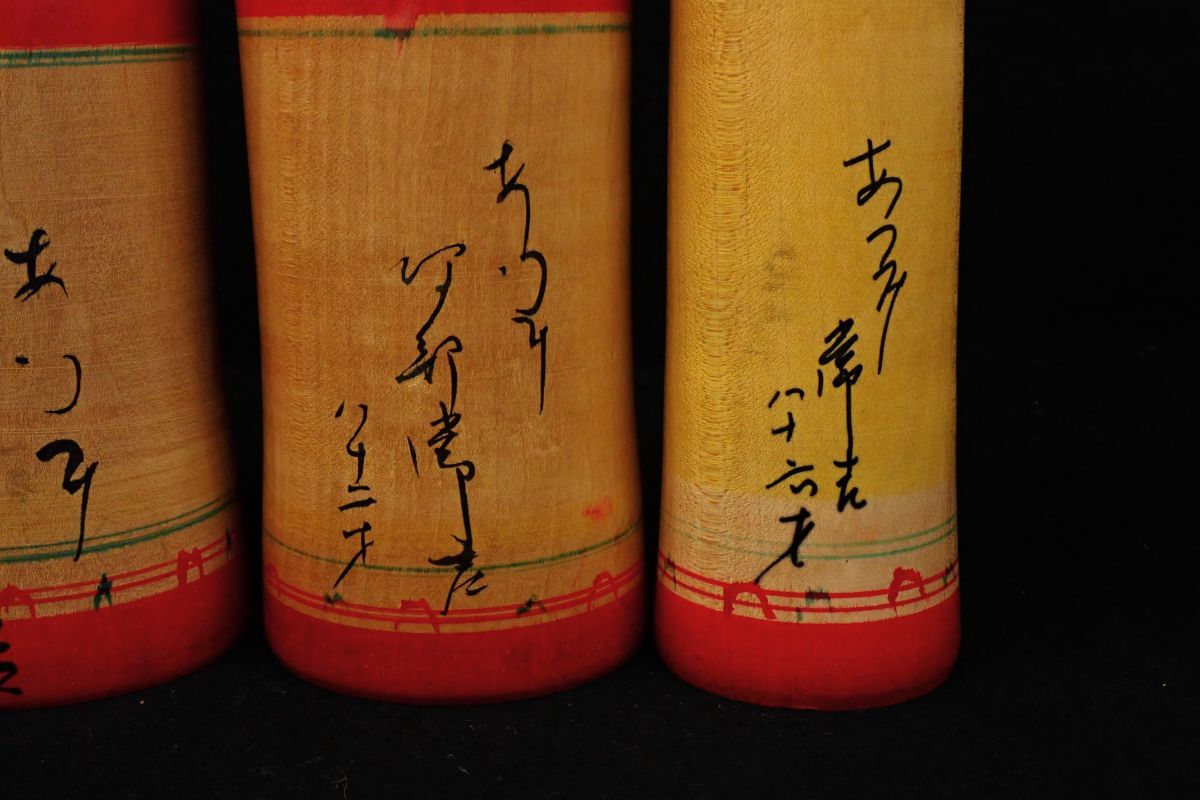 あつみ
常吉
八十六才
あつみ
阿部常吉
八十二才
あつみ